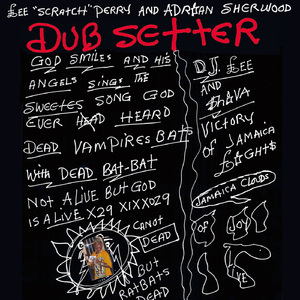 £EE "SCRATCH" PERRY AND ADRIAN SHERWOOD
DUB SETTER
GOD SMILES AND HIS
ANGELS SINGS THE
SWEETES SONG GOD
EVER HEAD HEARD
DEAD VAMPIRES BATS
WITH DEAD BAT-BAT
NOT ALIVE BUT GOD
IS ALIVE X29 XIXXOZ9
CANOT
DEAD
BUT
RATBATS
DEAD
D.J. £EE
AND
VICTORY,
OF JAMAICA
£IGHT$
JAMAICA CLOUDS
OF JOY